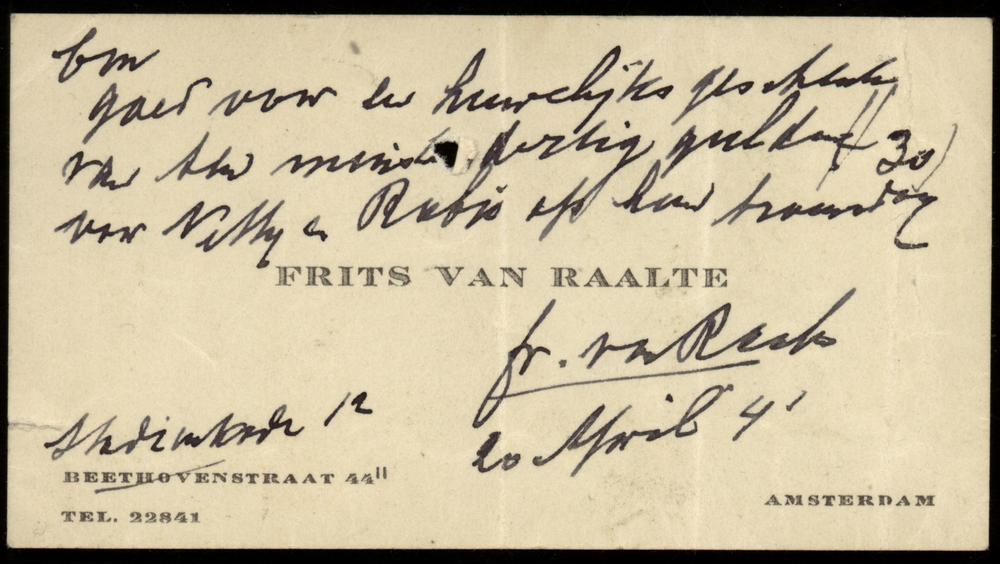 Bon
goed voor een huwelijks geschenk
van ten minste dertig gulden (30)
voor Netty en Robje op hun trouwdag
FRITS VAN RAALTE
fr. van Raalte
20 April 41
Stadionkade 12
BEETHOVENSTRAAT 44 II
TEL. 22841
AMSTERDAM